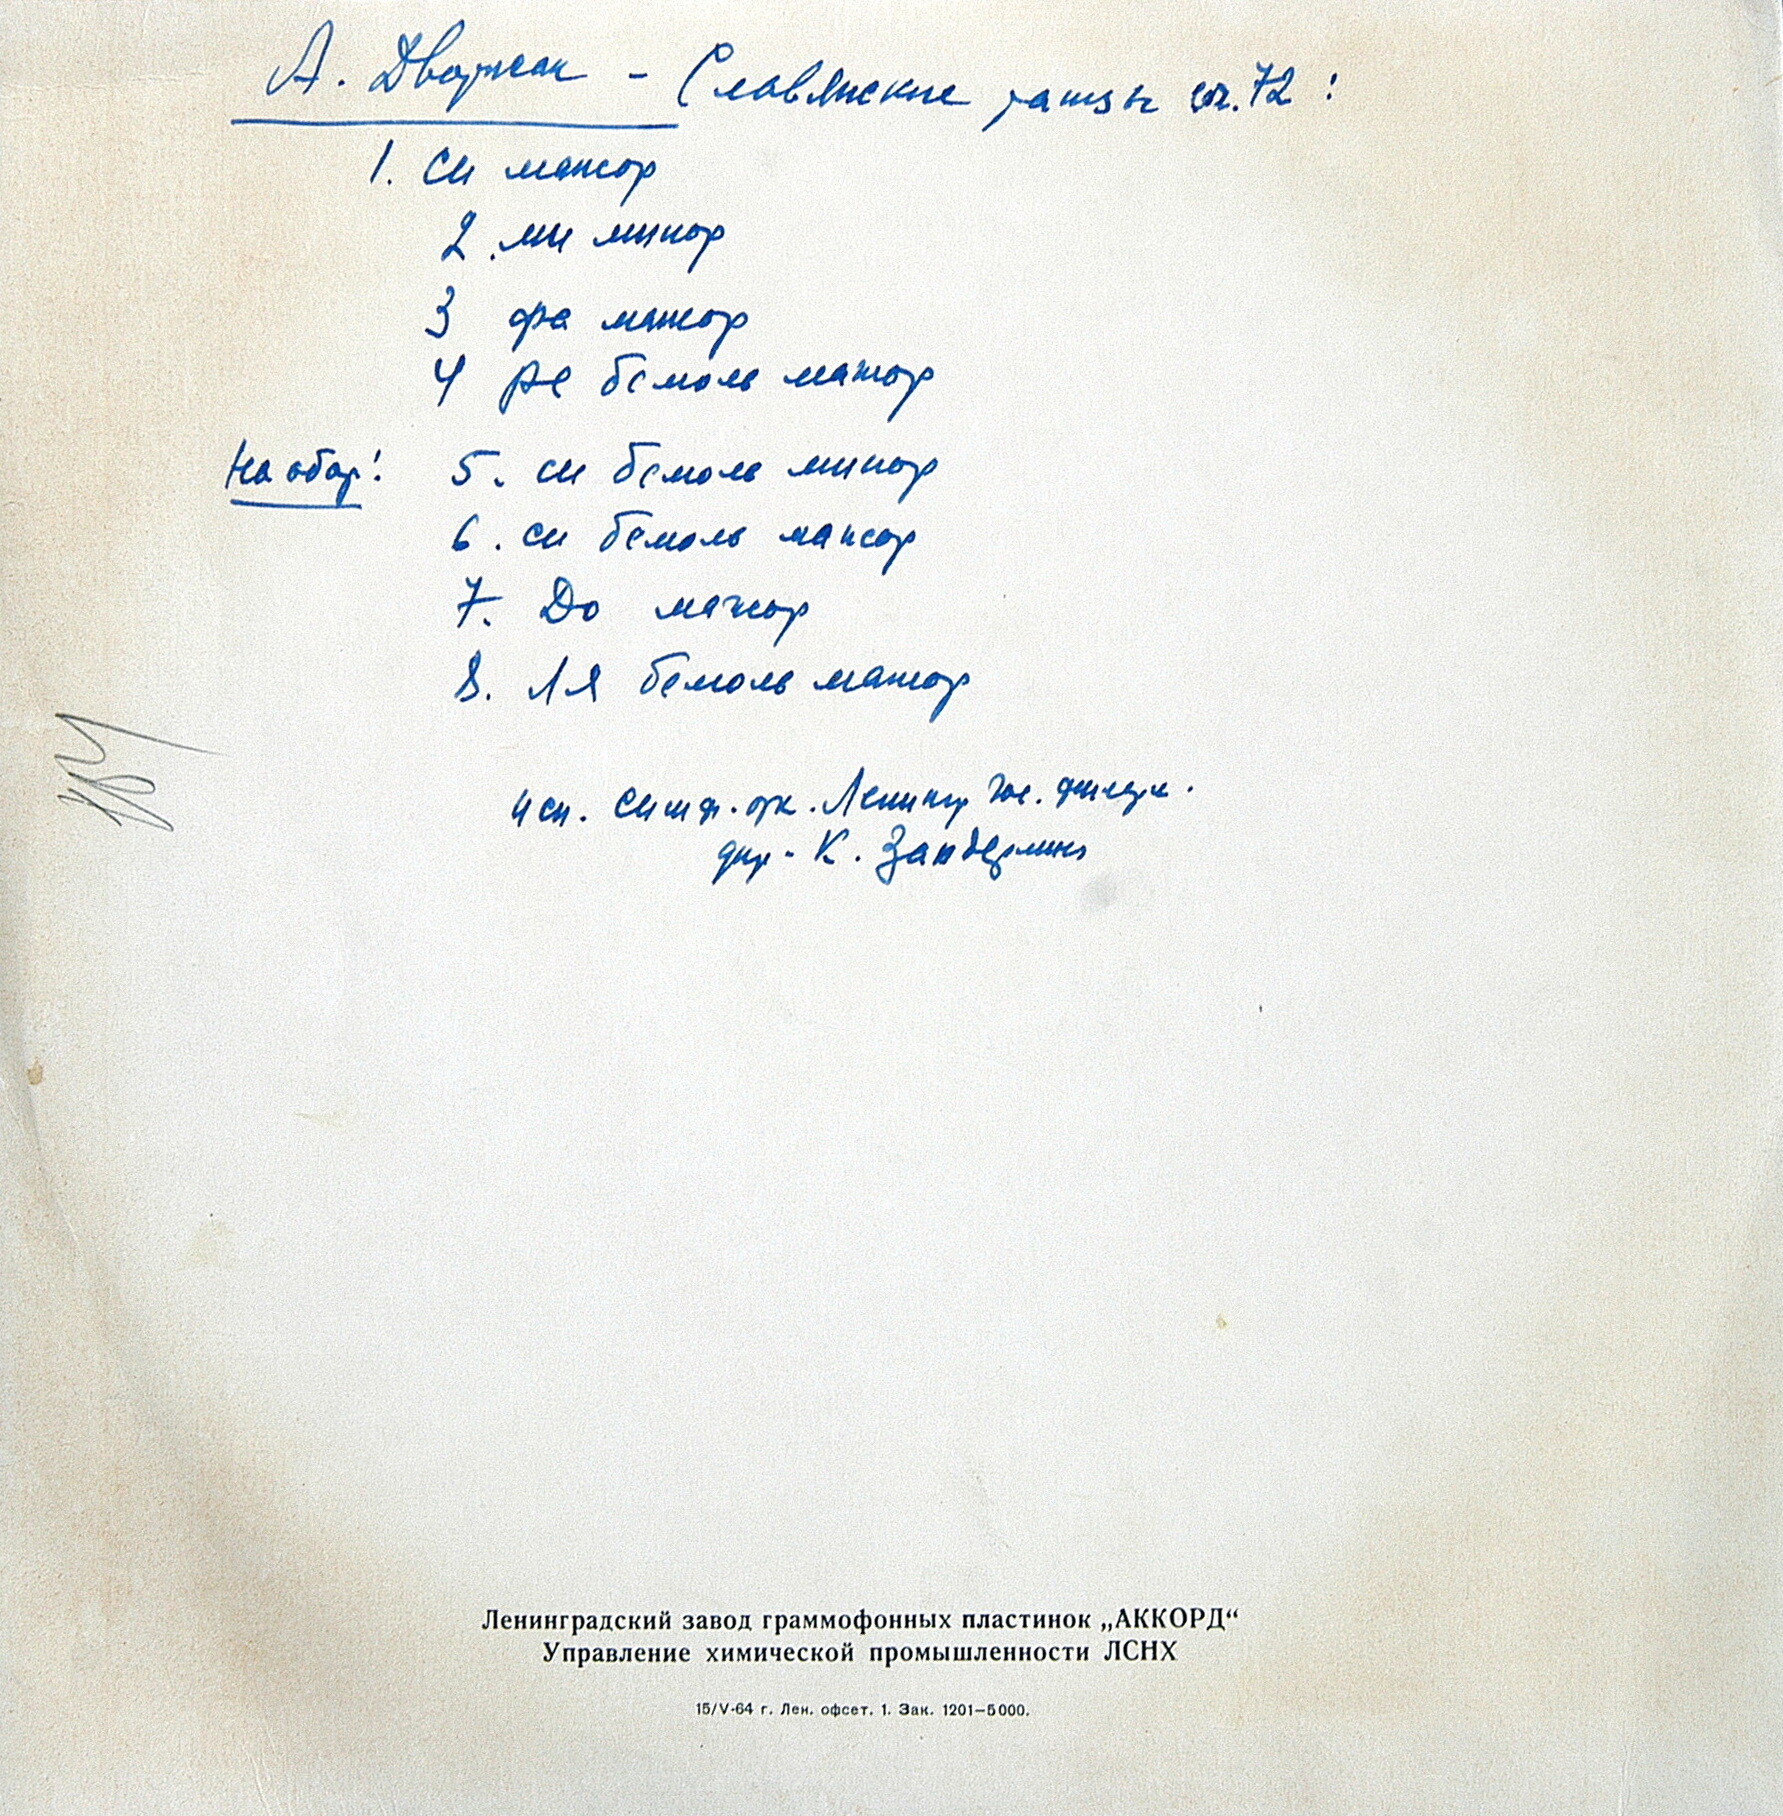 А. Дворжак - Славянские танцы соч. 72 :
1. си мажор
2. ми минор
3 фа мажор
4 ре бемоль мажор
На обор! 5. си бемоль минор
6. си бемоль мажор
7. До мажор
8. Ля бемоль мажор
исп. симф. орк. Ленингр гос. филарм.
дир. К. Зандерлинг
Ленинградский завод граммофонных пластинок „АККОРД“
Управление химической промышленности ЛСНХ
15/V-64 г. Лен. офсет. 1. Зак. 1201—5000.